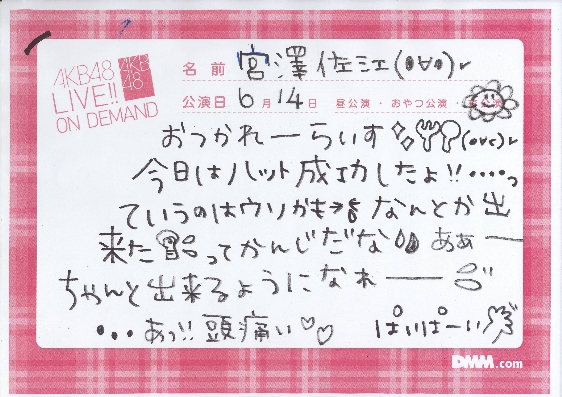 AKB48
LIVE!!
ON DEMAND
AKB
48
名前 宮澤佐江(●∀●)
公演日 6月14日 昼公演・おやつ公演・夜公演
おつかれーらいす
今日はハット成功したょ!!・・・・っ
ていうのはウソかも なんとか出
来た ってかんじだな あぁー
ちゃんと出来るようになれー
・・・あっ!!頭痛い♡♡ ぱいぱーい
DMM.com